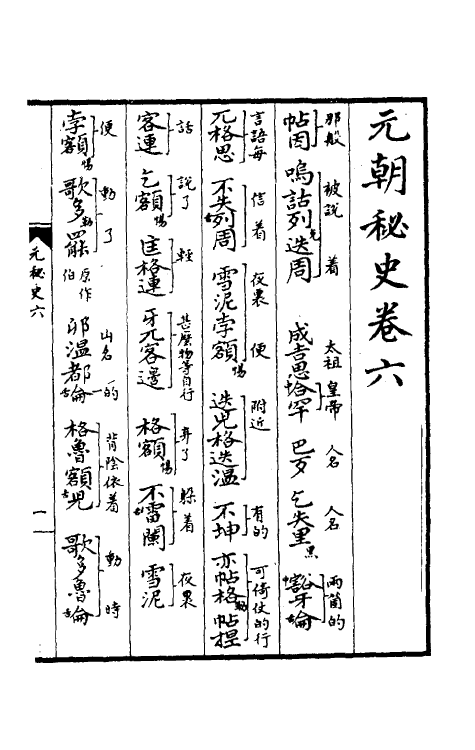 元朝秘史卷六
那般 被說 着 太祖皇帝 人名 人名 兩箇的
帖因 嗚詁列迭周 成吉思合罕 巴歹 乞失里黑 豁牙侖
言語每 信着 夜裏 便 附近 有的 可倚仗的行
兀格思 不失列周 雪泥孛額惕 迭兒格迭溫 不坤 亦帖格勒帖揑
話 說了 輕 甚麽物等自行 弃了 躱着 夜裏
客連 乞額惕 匡格連 牙兀客邊 格額惕 不雷闌 雪泥
便 動了 原作伯 山名的 背陰依着 動時
孛額惕 歌多勒罷 卯溫都侖 格魯額兒 歌多魯侖
元秘史六
一